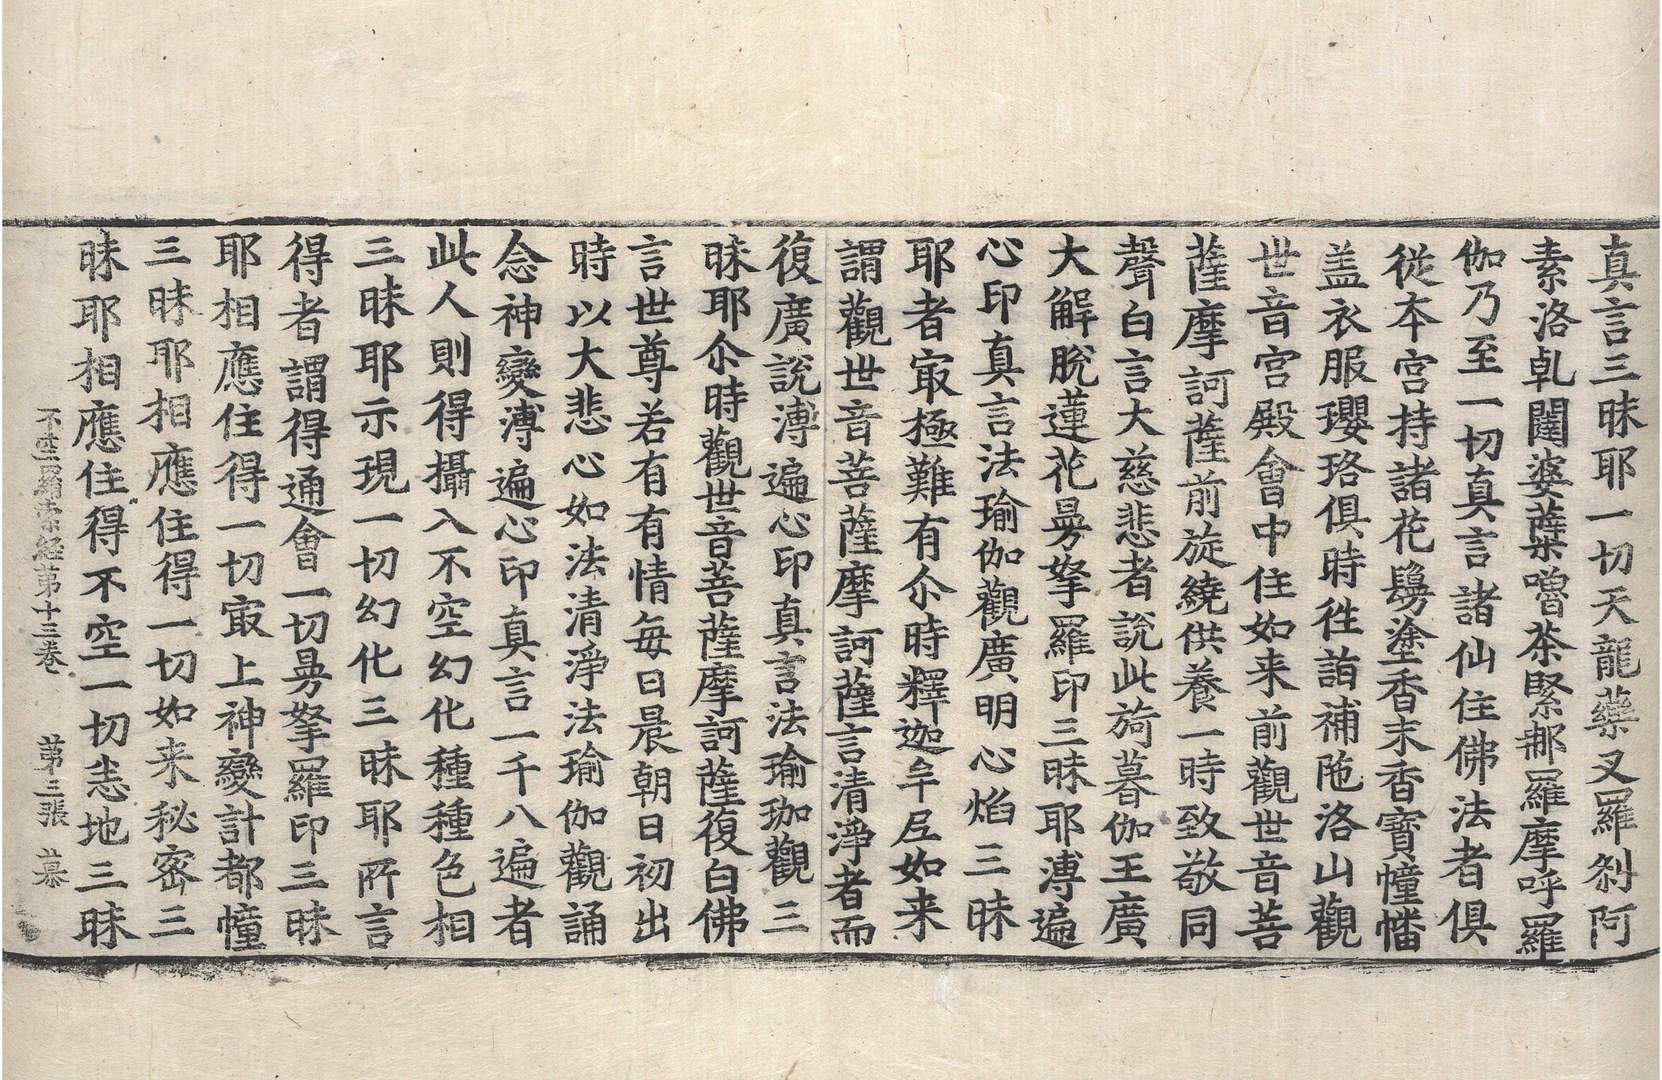 真言三昧耶一切天龍藥叉羅剎阿
素洛乹闥婆蘖嚕荼緊那羅摩呼羅
伽乃至一切真言諸仙住佛法者俱
從本宮持諸花鬘塗香末香寶幢幡
盖衣服瓔珞俱時徃詣補陁洛山觀
世音宮殿會中住如来前觀世音菩
薩摩訶薩前旋繞供養一時致敬同
聲白言大慈悲者說此旖暮伽王廣
大解脫蓮花曼拏羅印三昧耶溥遍
心印真言法瑜伽觀廣明心焰三昧
耶者㝡極難有尒時釋迦牟𡰱如来
謂觀世音菩薩摩訶薩言清淨者而
復廣說溥遍心印真言法瑜珈觀三
昧耶尒時觀世音菩薩摩訶薩復白佛
言世尊若有有情每日晨朝日初出
時以大悲心如法清淨法瑜伽觀誦
念神變溥遍心印真言一千八遍者
此人則得攝入不空幻化種種色相
三昧耶示現一切幻化三昧耶所言
得者謂得通會一切曼拏羅印三昧
耶相應住得一切㝡上神變計都幢
三昧耶相應住得一切如来秘密三
昧耶相應住得不空一切悉地三昧
不空羂索経苐十三卷　苐三張　慕